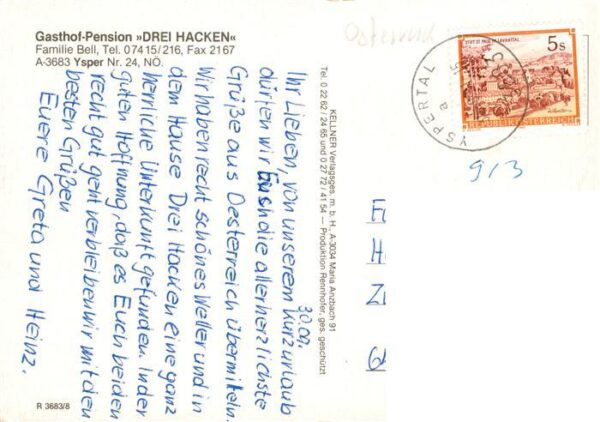 Gasthof-Pension »DREI HACKEN«
Familie Bell, Tel. 07415/216, Fax 2167
A-3683 Ysper Nr. 24, NÖ.
30.09.
Ihr Lieben, von unserem Kurzurlaub
dürfen wir Euch die allerherzlichste
Grüße aus Oesterreich übermitteln.
Wir haben recht schönes Wetter und in
dem Hause Drei Hacken eine ganz
herrliche Unterkunft gefunden. In der
guten Hoffnung, daß es Euch beiden
recht gut geht verbleiben wir mit den
besten Grüßen
Euere Greta und Heinz.
R 3683/8
KELLNER Verlagsges. m. b. H., A-3034 Maria Anzbach 91
Tel. 0 22 62 / 24 65 und 0 27 72 / 41 54 — Produktion Rennhofer, ges. geschützt
5s
REPUBLIK ÖSTERREICH
YSPERTAL
a
913
H